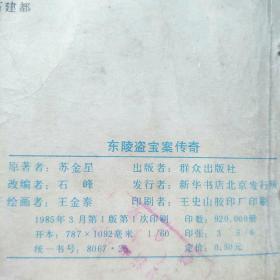 建都
东陵盗宝案传奇
原著者：苏金星 出版者：群众出版社
改编者：石峰 发行者：新华书店北京发行所
绘画者：王金泰 印刷者：王史山胶印厂印刷
1985年3月第1版第1次印刷 印数：920,000册
开本：787×1092毫米 1/60 印张：3
统一书号：8067· 定价：0.50元